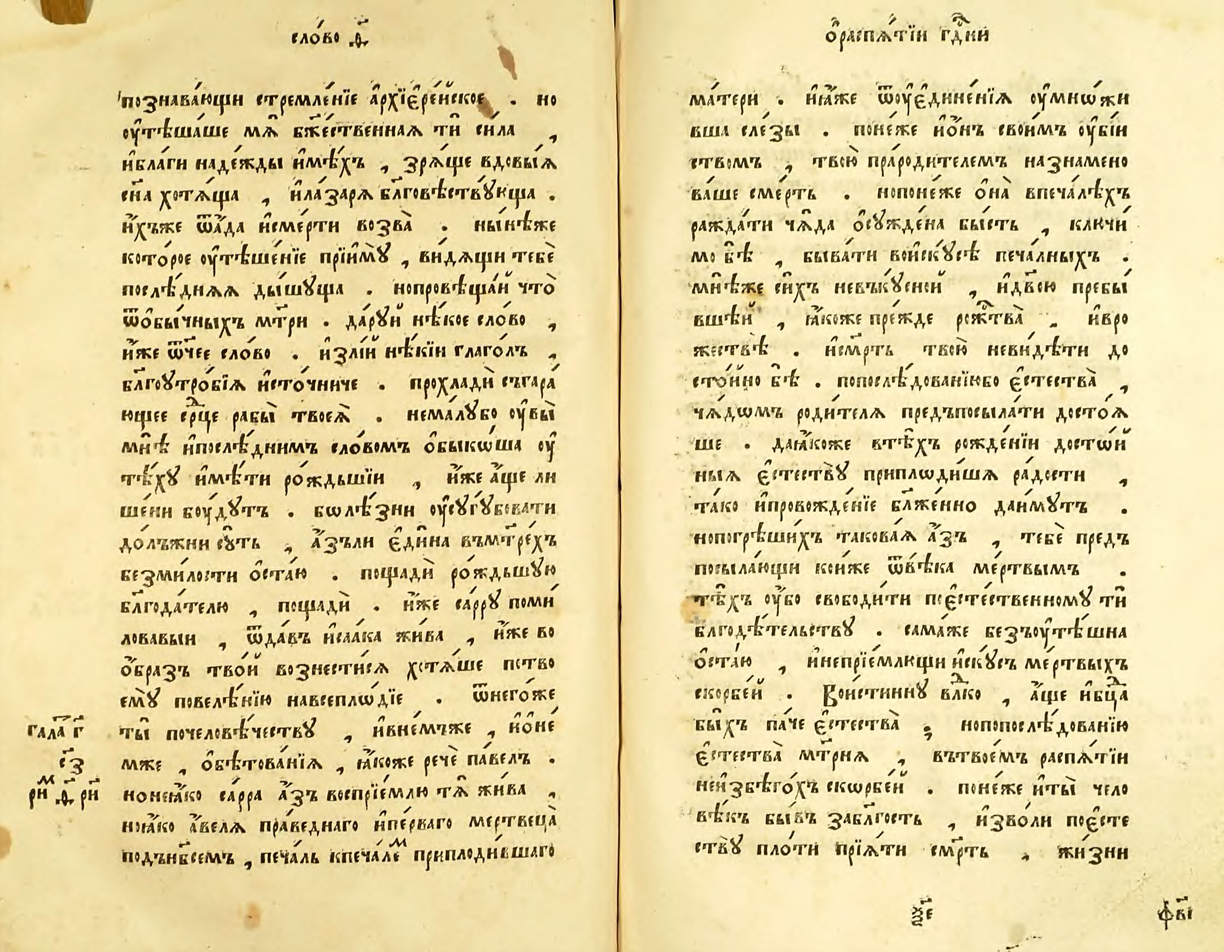 сло́во д҃
познава́ющи стремле́нїе а҆рхїе҆ре́йское . но
ᲂу҆тѣша́ше мѧ̀ бж҃е́ственнаѧ тѝ си́ла ,
и҆бла́ги наде́жды и҆мѣ́хъ , зрѧ́ще вдовы́ѧ
сн҃а хотѧ́ща , и҆ла́зарѧ бл҃говѣствꙋ́юща .
и҆́хъже ѿа҆́да и҆сме́рти возва̀ . ны́нѣже
кото́рое ᲂу҆тѣше́нїе прїимꙋ̀ , ви́дѧщи тебѐ
послѣ́днѧѧ ды́шꙋща . нопровѣща́й что̀
ѿо҆бы́чныхъ мт҃ри . да́рꙋй нѣ́кое сло́во ,
и҆́же ѿч҃ее сло́во . и҆злі́й нѣ́кїи глаго́лъ ,
бл҃гоꙋтро́бїѧ и҆сто́чниче . прохладѝ съгара́
ющее ср҃це рабы̀ твоеѧ̀ . нема́лꙋбо ᲂу҆вы̀
мнѣ̀ и҆послѣ́днимъ сло́вомъ ѻ҆быко́ша ᲂу҆
тѣ́хꙋ и҆мѣ́ти ро́ждьшїи , и҆́же а҆́ще ли
ше́ни боу́дꙋтъ . бѡлѣ́зни ᲂу҆сꙋгꙋ́бовати
до́лъжни сꙋ́ть , а҆́зъли е҆ди́на въмт҃рехъ
безми́лости ѻ҆ста́ю . пощадѝ ро́ждьшꙋю
бл҃года́телю , пощадѝ . и҆́же са́ррꙋ поми́
ловавыи , ѿда́въ и҆саа́ка жи́ва , и҆́же во
ѻ҆́бразъ тво́й вознести́сѧ хотѧ́ше по тво
емꙋ̀ повелѣ́нїю навсеплѡ́дїе . ѿнего́же
ты̀ почеловѣ́честву , и҆вне́мъже , и҆ѻ҆не́
мже , ѻ҆бѣтова́нїѧ , ꙗ҆́коже речѐ па́велъ .
гала́т г҃
є҆з
ри́м д҃ ри
нонеꙗ҆́ко са́рра а҆́зъ воспрїе́млю тѧ̀ жи́ва ,
ноꙗ҆́ко а҆́велѧ пра́веднаго и҆пе́рваго мертвеца̀
подънб҃се́мъ , печа́ль кпеча́лем приплоди́вшаго
ѻ҆распѧ́тїи гд҃ни
ма́тери . и҆ꙗ҆́же ѿоу҆едине́нїѧ ᲂу҆мно́жи
вша сле́зы . поне́же и҆ѻ҆́нъ свои́мъ ᲂу҆бі́и
ствомъ , твою̀ прароди́телемъ назнамено
ва́ше сме́рть . нопоне́же ѻ҆на̀ впеча́лехъ
ражда́ти чѧ́да ѻ҆сꙋжде́на бы́сть , ключи́
мо бѣ̀ , быва́ти воискꙋ́сѣ печа́лныхъ .
мнѣ́же си́хъ невъкꙋ́сной , и҆дв҃ою пребы́
вшей , ꙗ҆́коже пре́жде рожт҃ва̀ . и҆вро
жествѣ̀ . и҆смр҃ть твою̀ неви́дѣти до
сто́йно бѣ̀ . попослѣ́дованїюбо є҆стества̀ ,
чѧ́дѡмъ роди́телѧ предъпосыла́ти досто́ѧ
ше . даꙗ҆́коже втѣ́хъ рожде́нїи досто́й
ныѧ є҆стествꙋ̀ приплоди́шѧ ра́дости ,
та́ко и҆провожде́нїе бл҃же́нно даи́мꙋтъ .
нопогрѣши́хъ такова́ѧ а҆́зъ , тебѐ предъ
посыла́ющи кои́же ѿвѣ́ка ме́ртвымъ .
тѣ́хъ ᲂу҆́бо свободи́ти поє҆сте́ственномꙋ тѝ
бл҃годѣ́телству . сама́же безъꙋтѣ́шна
ѻ҆ста́ю , и҆непрїе́млющи и҆скꙋ́съ ме́ртвыхъ
скорбе́й . Вои́стиннꙋ влⷣко , а҆́ще и҆бц҃а
бы́хъ па́че є҆стества̀ ; нопопослѣ́дованїю
є҆стества̀ мт҃рнѧ , въ твое́мъ распѧ́тїи
неизбѣго́хъ ско́рбей . поне́же и҆ты̀ чело
вѣ́къ бы́въ за бл҃гость , и҆зво́ли поє҆сте
ствꙋ̀ пло́ти прїѧ́ти смр҃ть , жи́зни
ѯ҃е
ф҃ві